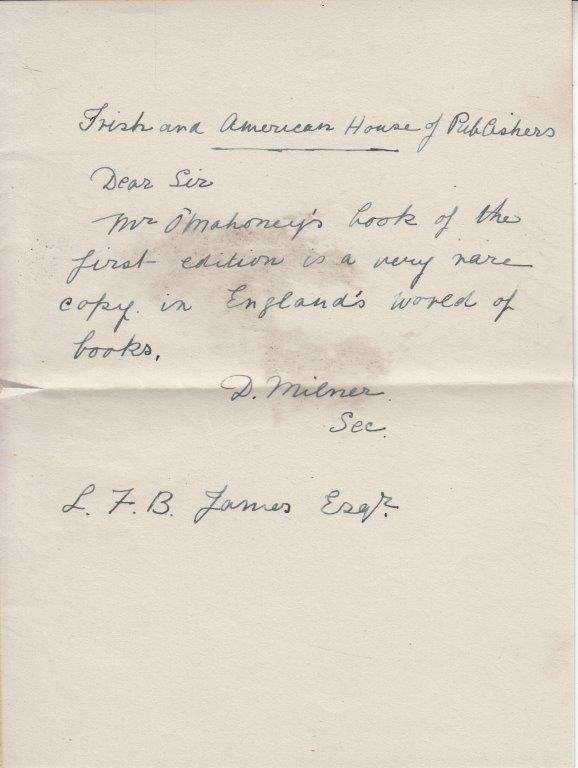 Irish and American House of Publishers
Dear Sir
Mr O'Mahoney's book of the
first edition is a very rare
copy. in England's world of
books.
D. Milner.
Sec.
L. F. B. James Esqr.